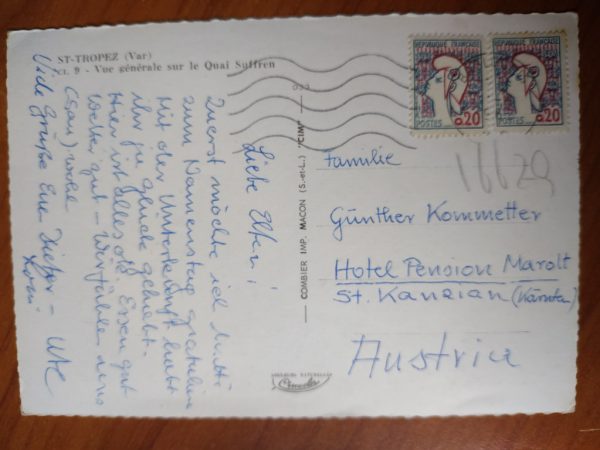 ST-TROPEZ (Var)
Ct. 9 - Vue générale sur le Quai Suffren
Liebe Eltern!
Zuerst möchte ich Mutti
zum Namenstag gratulieren
Mit der Unterkunft habt
ihr ja Glück gehabt.
Hier ist alles ok. Essen gut
Wetter gut - Wir fühlen uns
wohl
Viele Grüße Eure Dieter - Ute
COMBIER IMP. MACON (S.-et-L.) "CIM"
REPUBLIQUE FRANÇAISE
POSTES 0,20
REPUBLIQUE FRANÇAISE
POSTES 0,20
Familie
16629
Günther Kommetter
Hotel Pension Marolt
St. Kanzian (Kärnten)
Austria